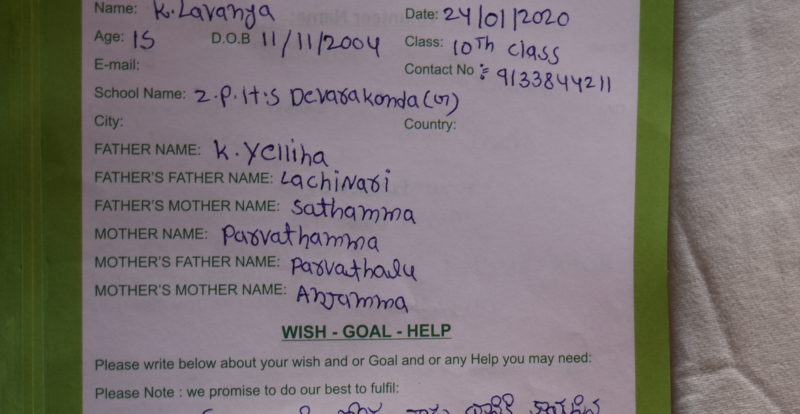 Name: K. Lavanya Date: 24/01/2020
Age: 15 D.O.B 11/11/2004 Class: 10Th class
E-mail: Contact No : 9133844211
School Name: Z.P.H.S Devarakonda
City: Country:
FATHER NAME: K. Yelliha
FATHER'S FATHER NAME: Lachinari
FATHER'S MOTHER NAME: Sathamma
MOTHER NAME: Parvathamma
MOTHER'S FATHER NAME: Parvathalu
MOTHER'S MOTHER NAME: Anjamma
WISH - GOAL - HELP
Please write below about your wish and or Goal and or any Help you may need:
Please Note : we promise to do our best to fulfil: